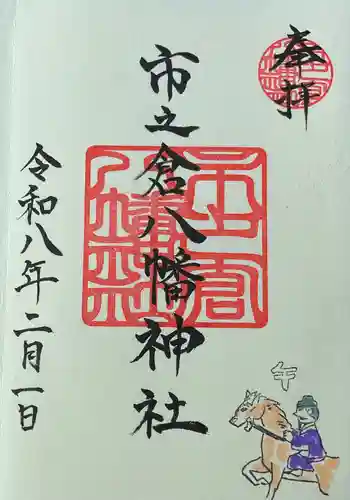 奉拝
市之倉八幡神社
令和八年二月一日
午